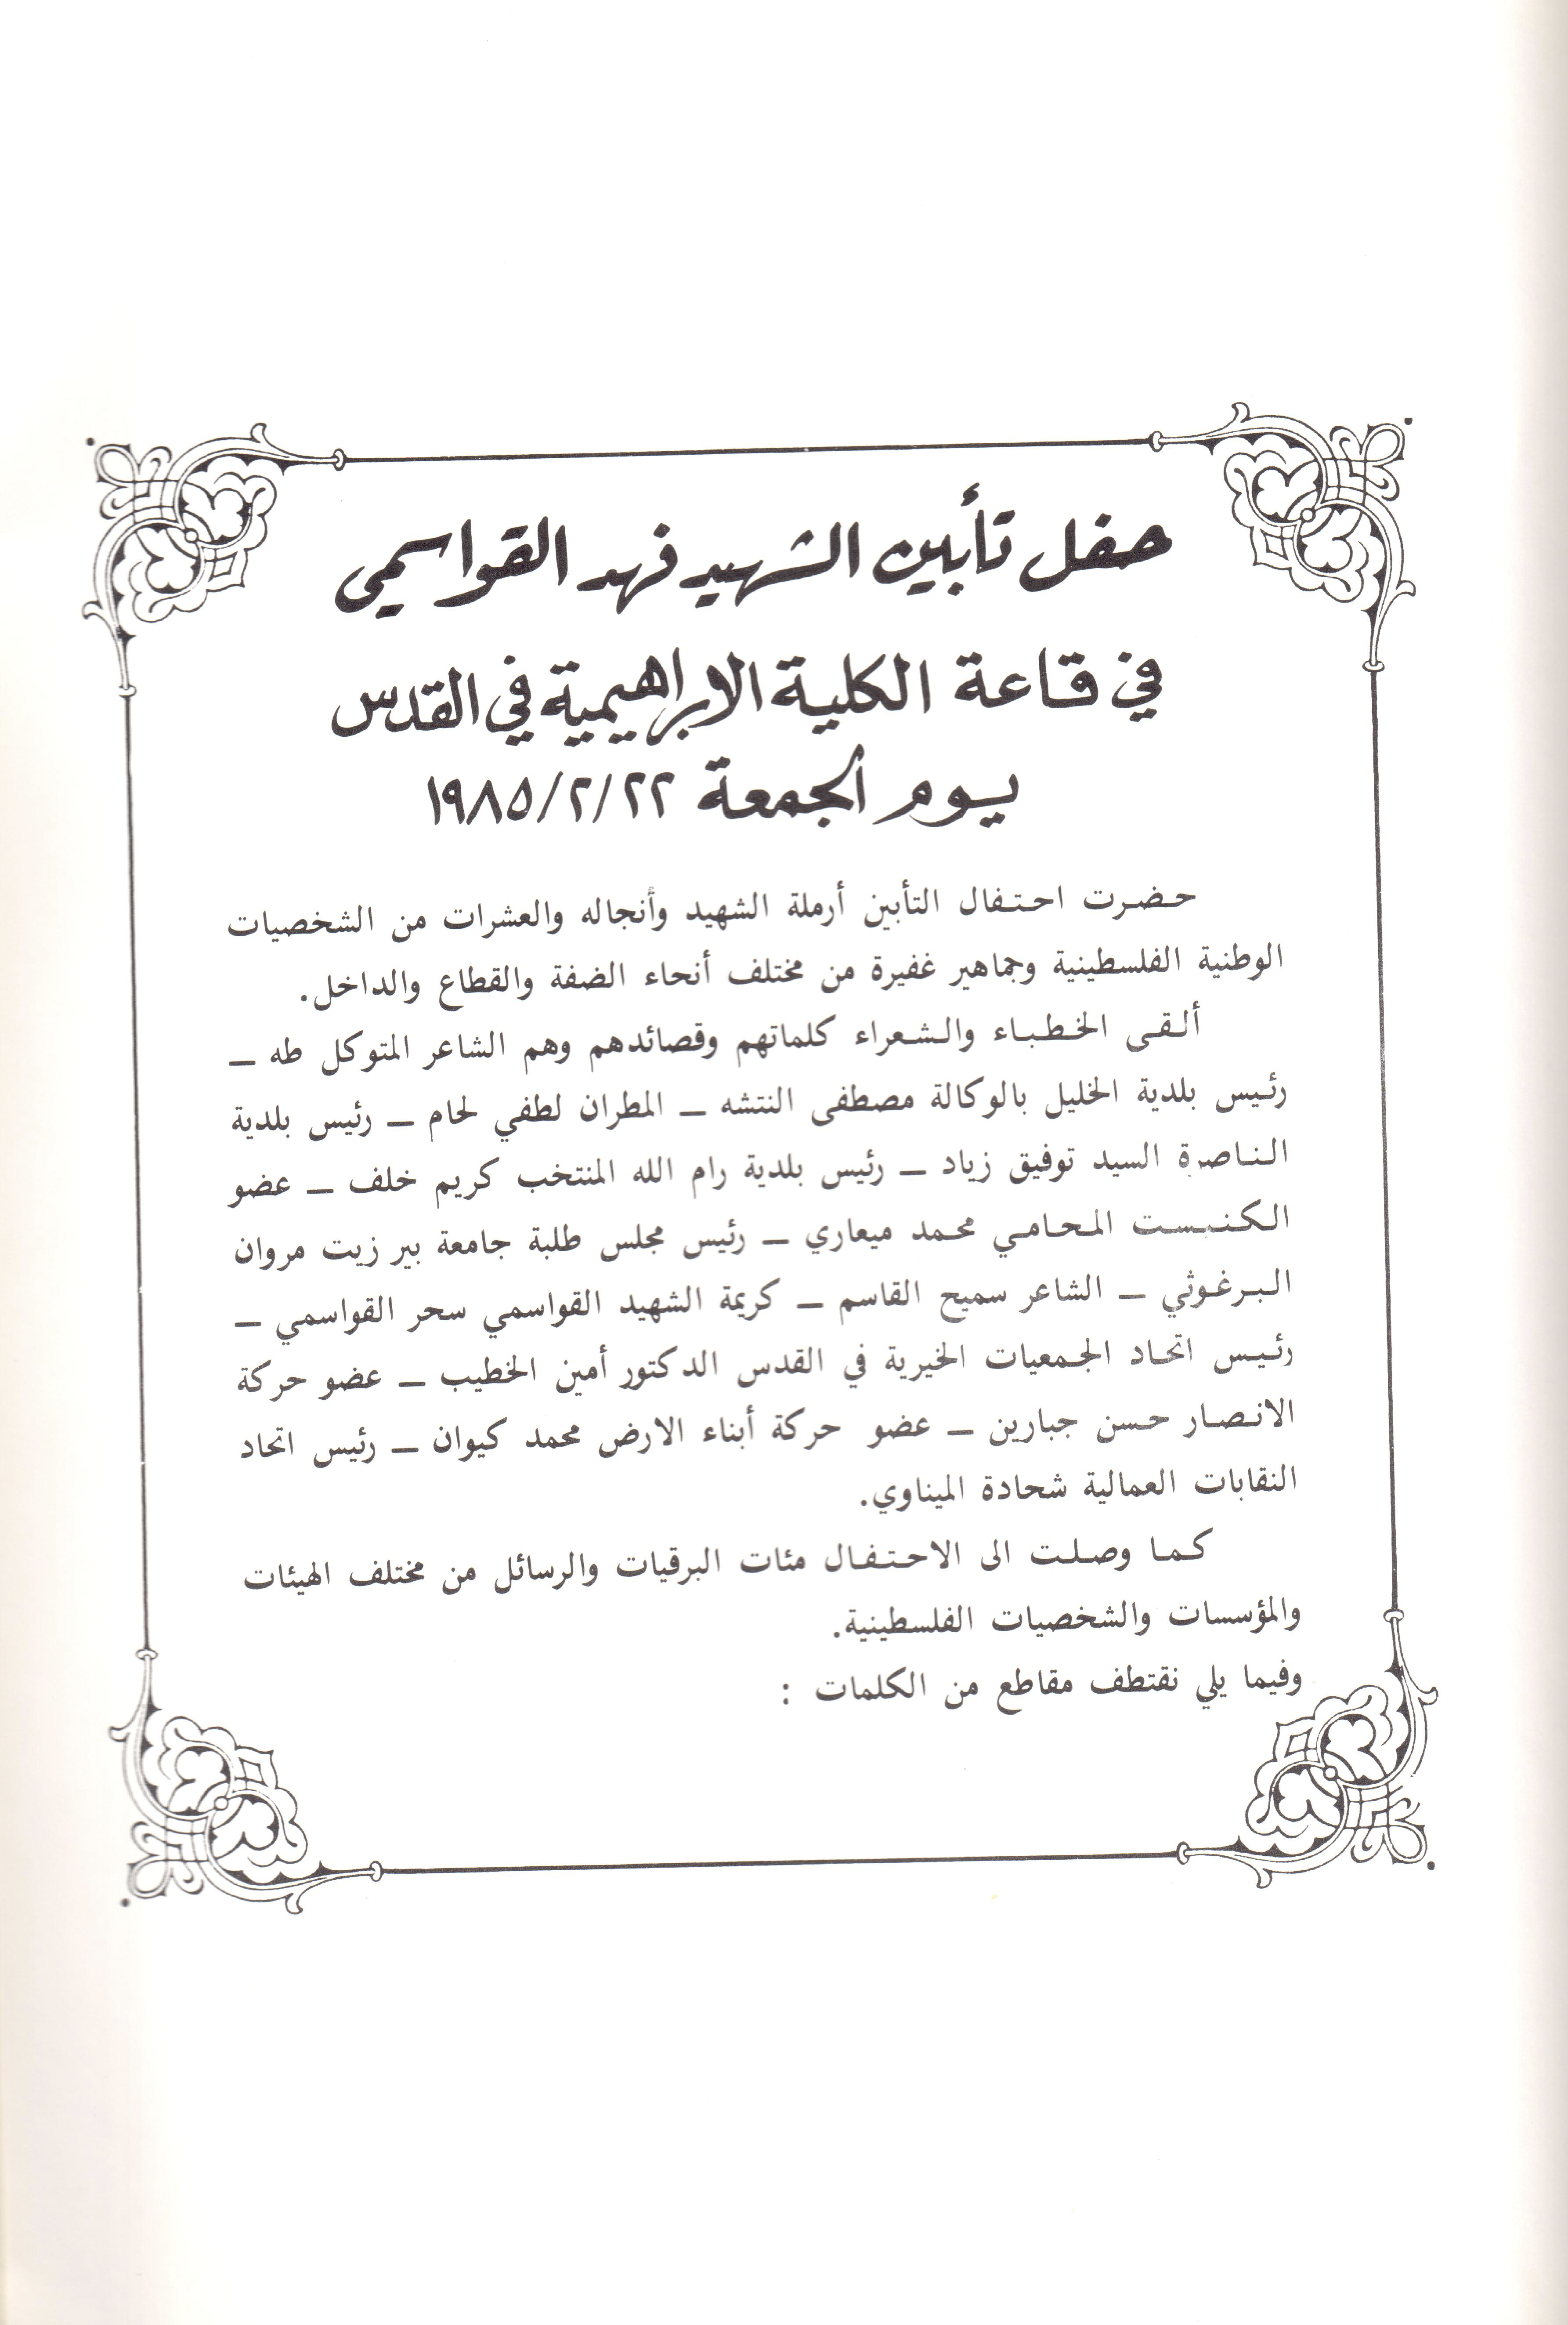 حفل تأبين الشهيد فهد القواسمي
في قاعة الكلية الابراهيمية في القدس
يوم الجمعة ١٩٨٥/٢/٢٢
حضرت احتفال التأبين أرملة الشهيد وأنجاله والعشرات من الشخصيات
الوطنية الفلسطينية وجماهير غفيرة من مختلف أنحاء الضفة والقطاع والداخل.
ألقى الخطباء والشعراء كلماتهم وقصائدهم وهم الشاعر المتوكل طه —
رئيس بلدية الخليل بالوكالة مصطفى النتشه — المطران لطفي لحام — رئيس بلدية
الناصرة السيد توفيق زياد — رئيس بلدية رام الله المنتخب كريم خلف — عضو
الكنيست المحامي محمد ميعاري — رئيس مجلس طلبة جامعة بير زيت مروان
البرغوثي — الشاعر سميح القاسم — كريمة الشهيد القواسمي سحر القواسمي —
رئيس اتحاد الجمعيات الخيرية في القدس الدكتور أمين الخطيب — عضو حركة
الانصار حسن جبارين — عضو حركة أبناء الارض محمد كيوان — رئيس اتحاد
النقابات العمالية شحادة الميناوي.
كما وصلت الى الاحتفال مئات البرقيات والرسائل من مختلف الهيئات
والمؤسسات والشخصيات الفلسطينية.
وفيما يلي نقتطف مقاطع من الكلمات :